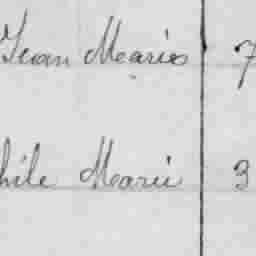 Jean Marie 7
hile Marie 3